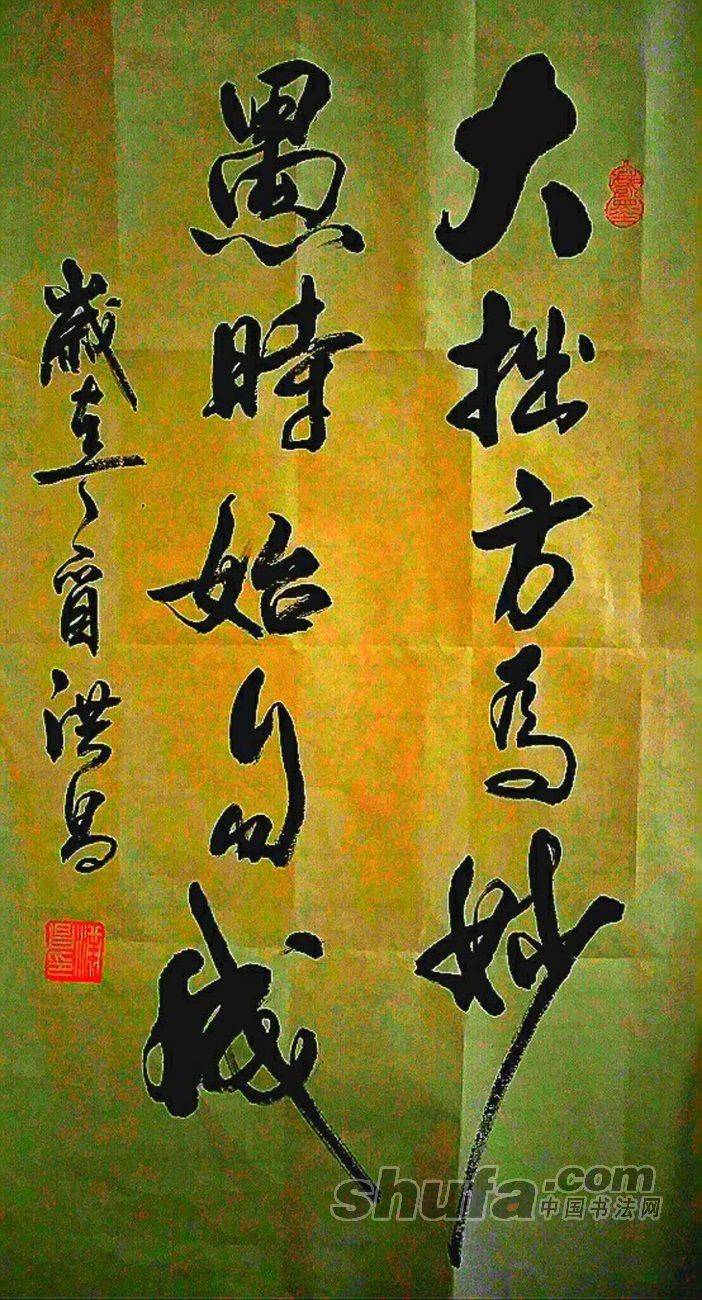 大拙方為妙
愚時始自成
歲在丁酉洪昌
shufa.com
中国书法网